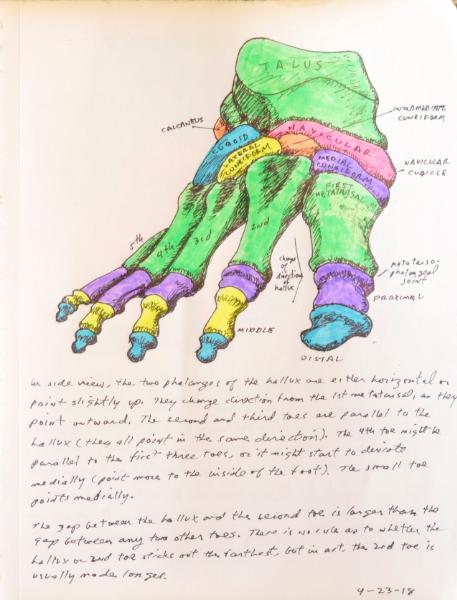 TALUS
INTERMEDIATE
CUNEIFORM
CALCANEUS
NAVICULAR
CUBOID
LATERAL
CUNEIFORM
MEDIAL
CUNEIFORM
NAVICULAR
CUBICLE
FIRST
METATARSAL
2nd
3rd
4th
5th
Change
of
direction
of
hallux
METATARSO-
PHALANGEAL
JOINT
PROXIMAL
MIDDLE
DISTAL
In side view, the two phalanges of the hallux are either horizontal or
point slightly up. They change direction from the 1st metatarsal, as they
point outward. The second and third toes are parallel to the
hallux (they all point in the same direction). The 4th toe might be
parallel to the first three toes, or it might start to deviate
medially (point more to the inside of the foot). The small toe
points medially.
The gap between the hallux and the second toe is larger than the
gap between any two other toes. There is no rule as to whether the
hallux or 2nd toe sticks out the farthest, but in art, the 2nd toe is
usually made longer.
4-23-18